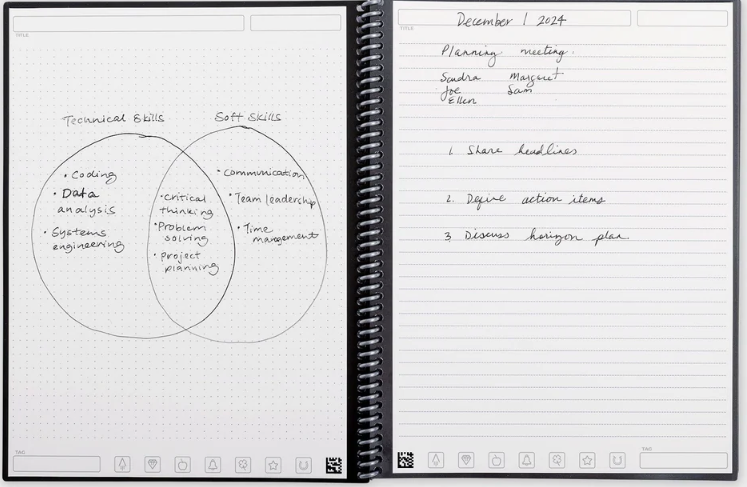 TITLE
Technical Skills
Soft Skills
• Coding
• Data
analysis
• Systems
engineering
• Critical
thinking
• Problem
solving
• Project
planning
• Communication
• Team leadership
• Time
management
TAG
TITLE
December 1 2024
Planning meeting.
Sandra Margaret
Joe Sam
Ellen
1. Share headlines
2. Define action items
3. Discuss horizon plan
TAG